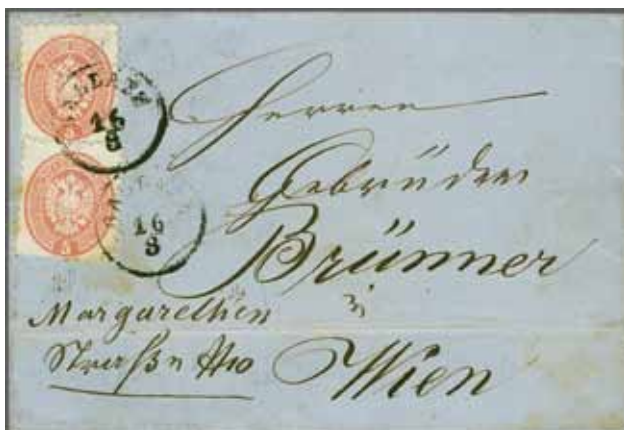 16
8
16
8
5
Herren
Gebrüder
Brünner
Margarethen
Straße No 10
Wien